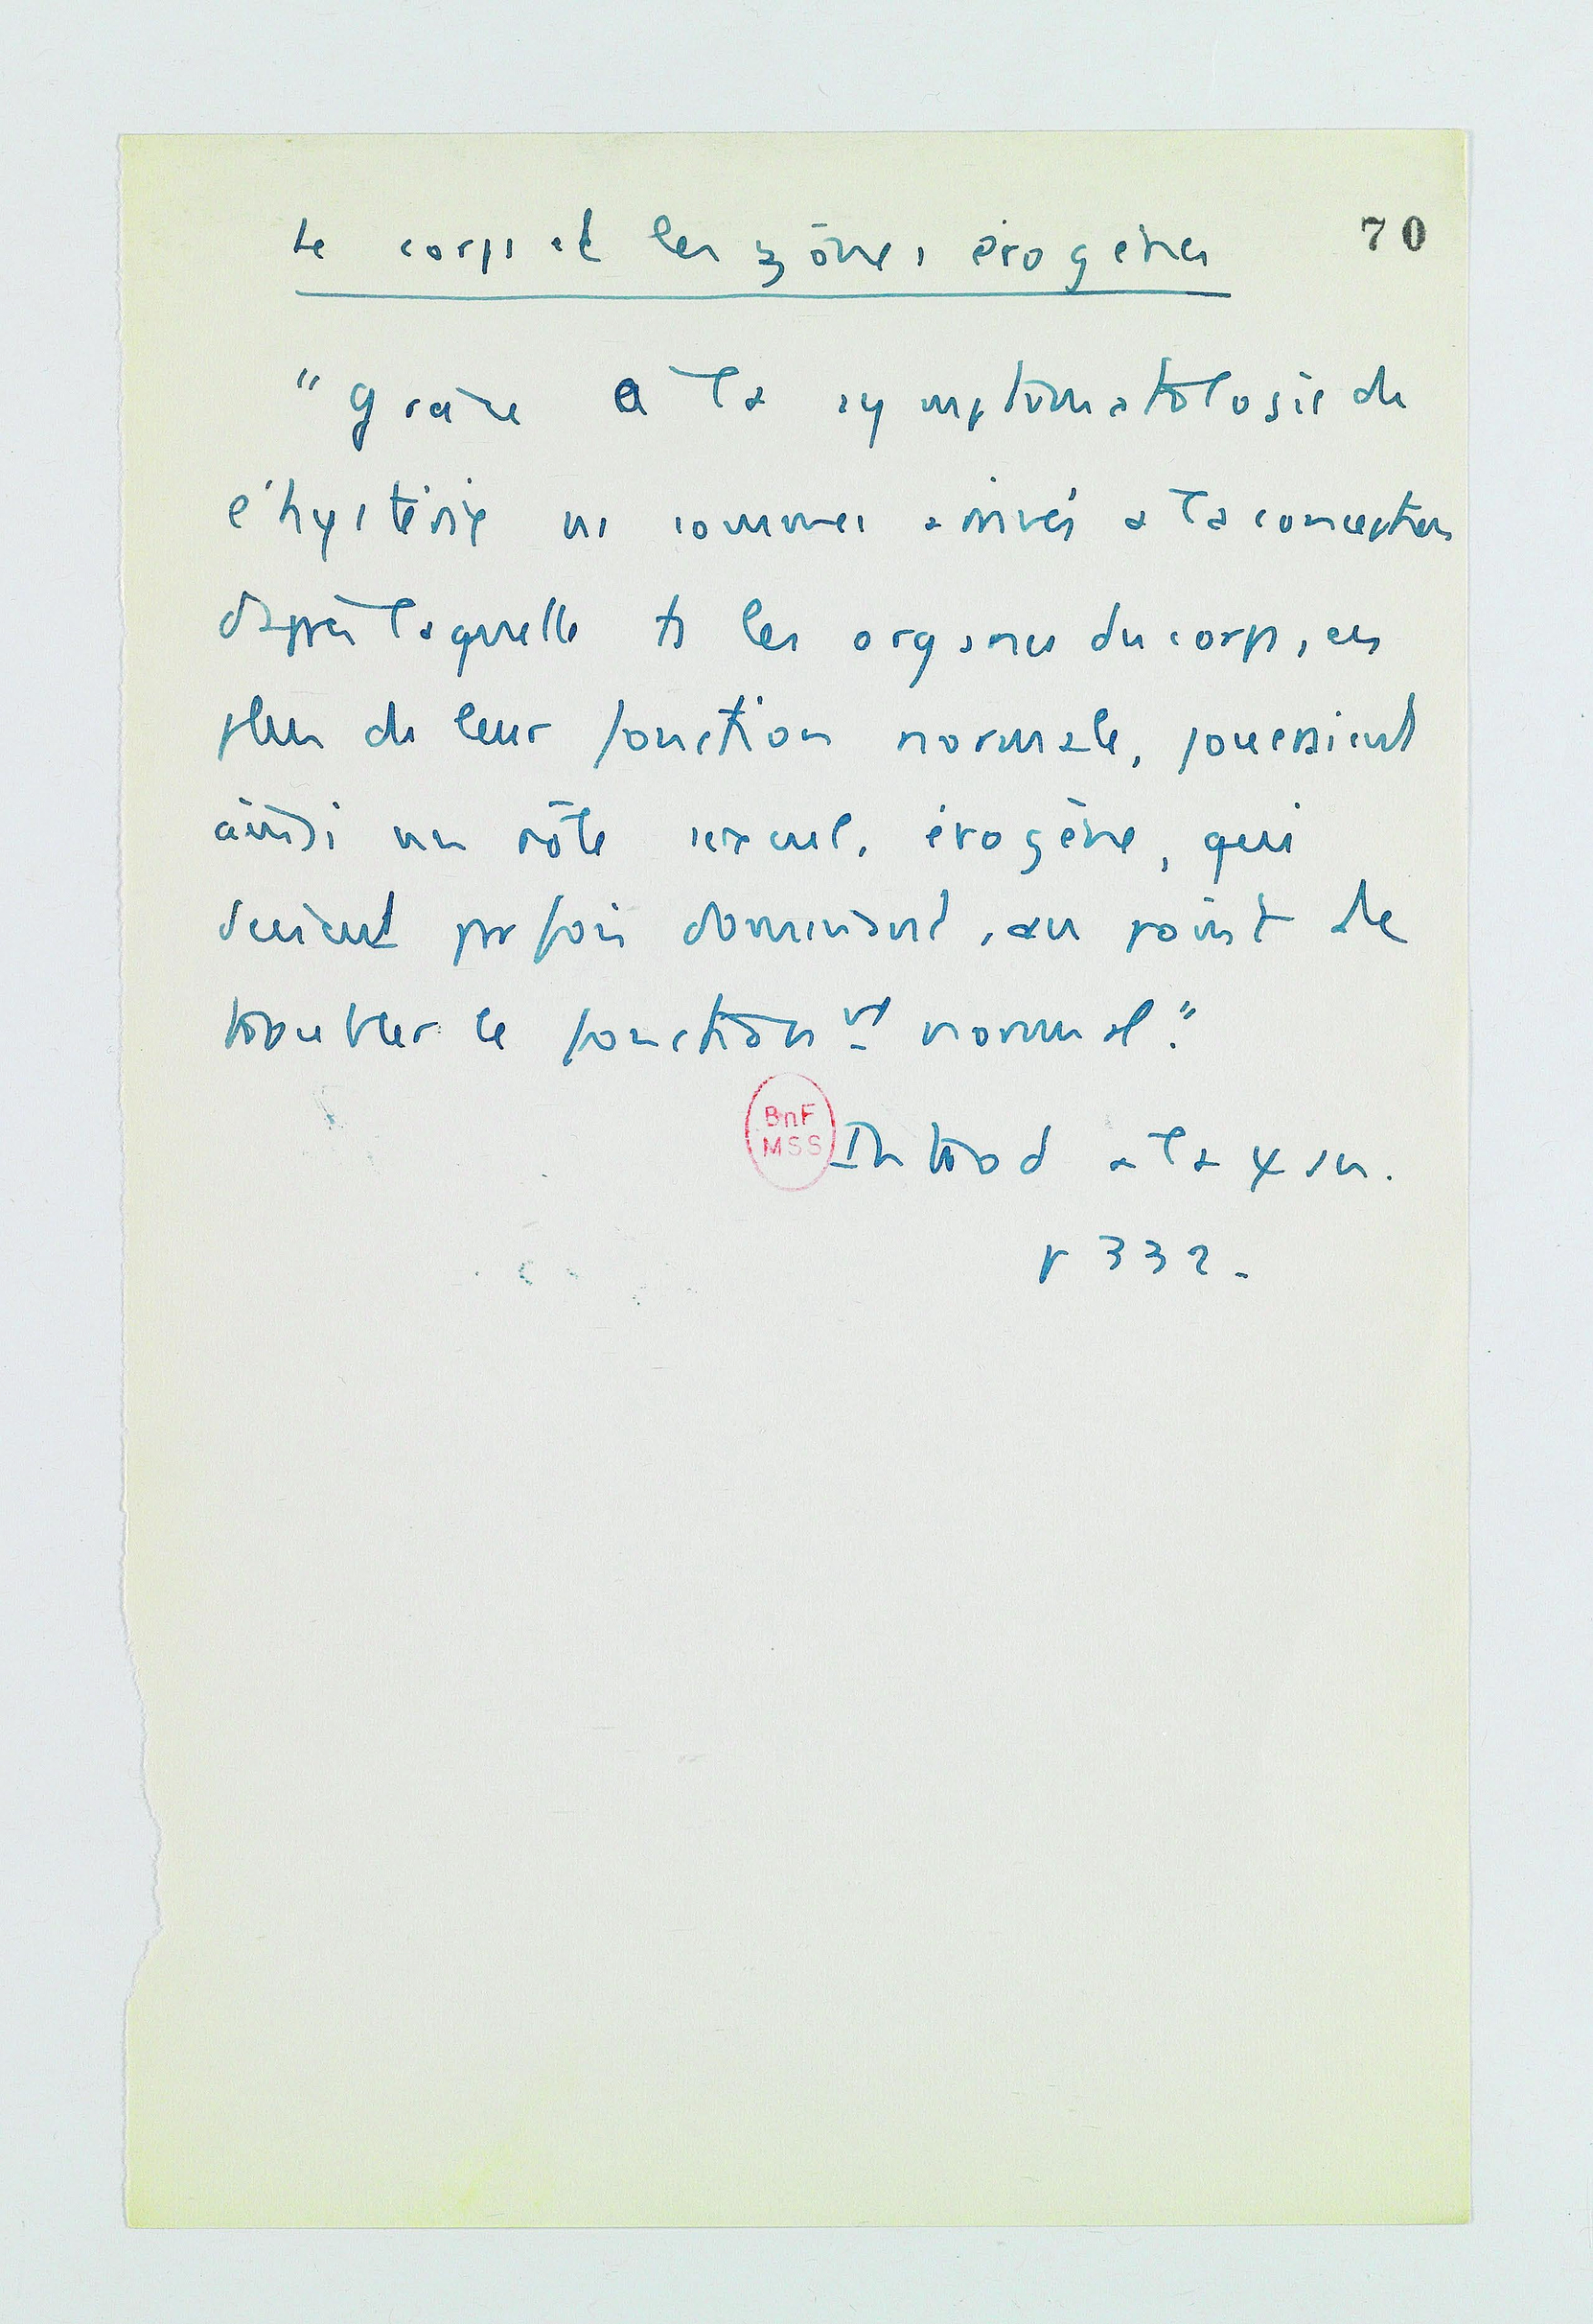 Le corps et les zônes érogènes
70
"Grâce a la symptomatologie de
l'hystérie ns sommes arrivés a la conception
d'après laquelle ts les organes du corps, en
plus de leur fonction normale, joueraient
ainsi un rôle sexuel, érogène, qui
devient parfois dominant, au point de
troubler le fonctionnt normal."
BnF
MSS
Introd a la ψ an.
p 332.